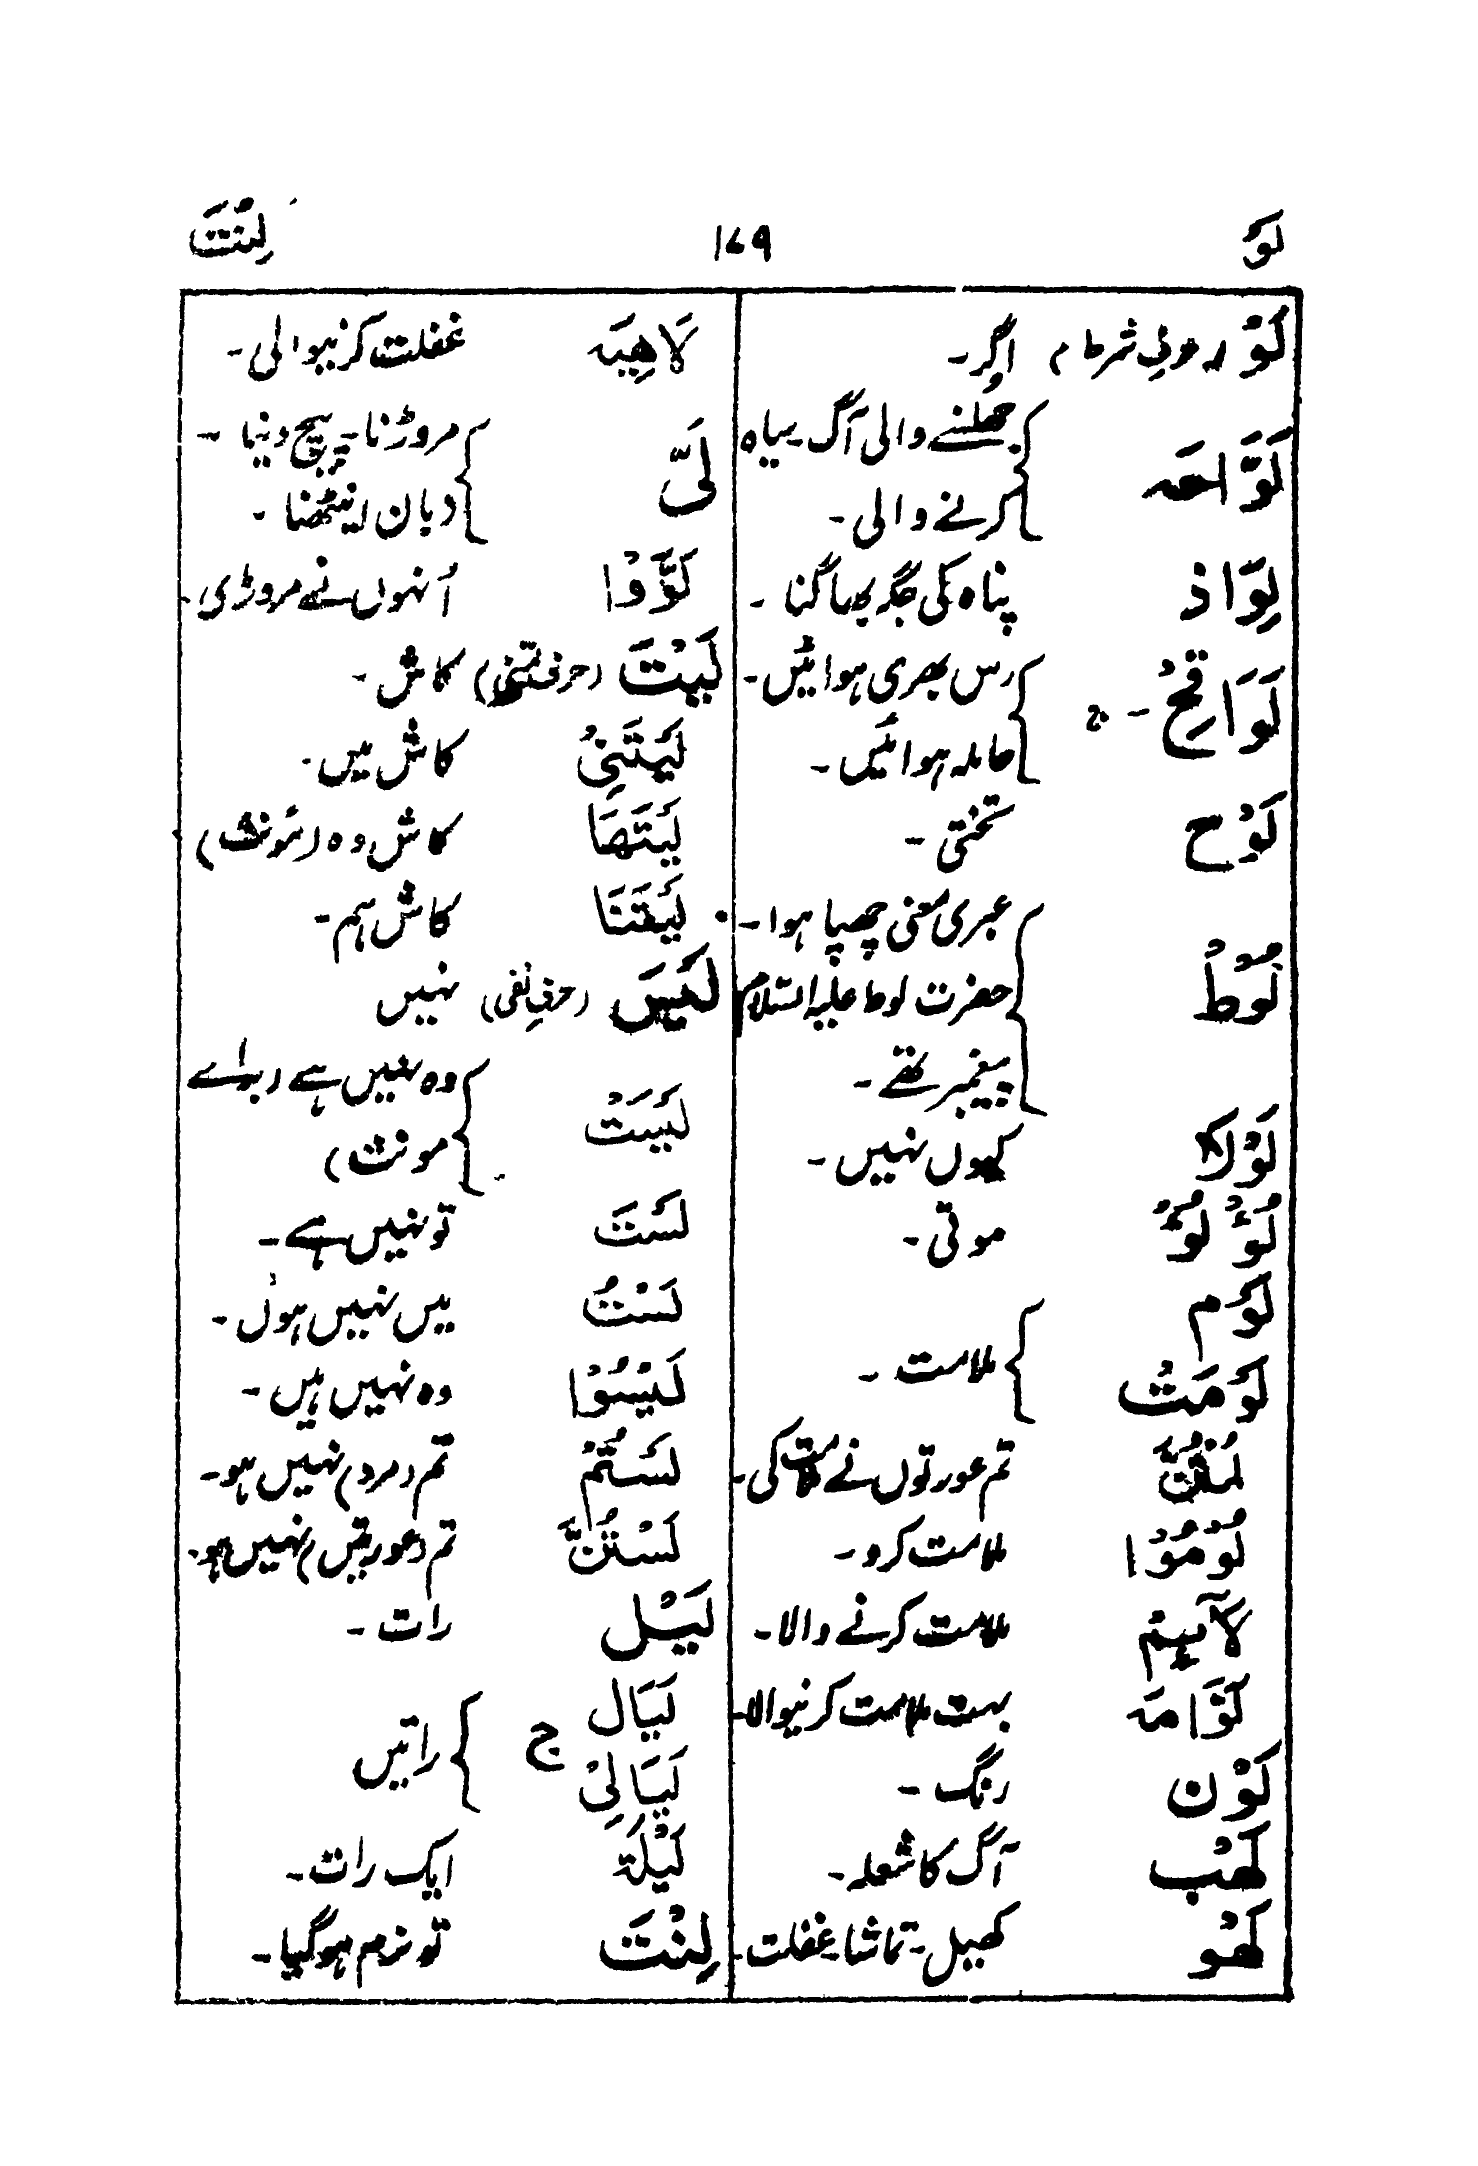 لَوْ ۱۷۹ لِنْتَ
لَوْ (حرفِ شرط) اگر۔
لَوَّاحَه جھلسنے والی آگ۔ سیاہ
کرنے والی۔
لِوَاذ پناہ کی جگہ بھاگنا۔
لَوَاقِحُ۔ ج رس بھری ہوائیں۔
حاملہ ہوائیں۔
لَوْح تختی۔
لُوْطُ عبری معنی چھپا ہوا۔
حضرت لوط علیہ السّلام
پیغمبر تھے۔
لَوْلَا کیوں نہیں۔
لُؤْلُؤُ موتی۔
لَوْم
لَوْمَتُ ملامت۔
لُمْتُنَّ تم عورتوں نے ملامت کی۔
لُوْمُوْا ملامت کرو۔
لَآئِمْ ملامت کرنے والا۔
لَوَّامَه بہت ملامت کرنیوالا۔
لَوْن رنگ۔
لَهْب آگ کا شعلہ۔
لَهْو کھیل۔ تماشا۔ غفلت۔
لَاهِيَه غفلت کرنیوالی۔
لَیّ مروڑنا۔ پیچ دینا۔
دبان اینٹھنا۔
لَوَّوْا اُنہوں نے مروڑی۔
لَيْتَ (حرف تمنّی) کاش۔
لَيْتَنِیْ کاش میں۔
لَيْتَهَا کاش وہ (مُونث)
لَيْتَنَا کاش ہم۔
لَيْسَ (حرفِ نفی) نہیں
لَيْسَتْ وہ نہیں ہے (برائے
مونث)
لَسْتَ تو نہیں ہے۔
لَسْتُ میں نہیں ہوں۔
لَيْسُوْا وہ نہیں ہیں۔
لَسْتُمْ تم (مرد) نہیں ہو۔
لَسْتُنَّ تم (عورتیں) نہیں ہو۔
لَيْل رات۔
لَيَال
لَيَالِیْ ج راتیں
لَيْلَة ایک رات۔
لِنْتَ تو نرم ہوگیا۔